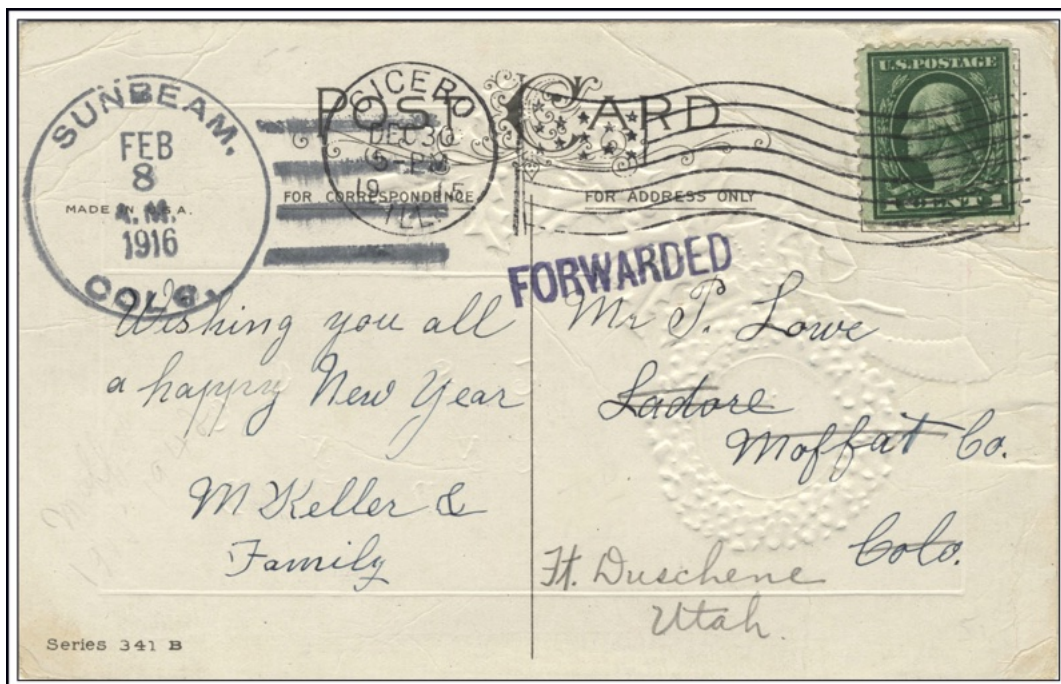 SUNBEAM,
FEB
8
A.M.
1916
COLO.
CICERO
DEC 30
5-PM
ILL.
POST CARD
U.S. POSTAGE
1 CENT 1
MADE IN U.S.A.
FOR CORRESPONDENCE
FOR ADDRESS ONLY
FORWARDED
Wishing you all
a happy New Year
M Keller &
Family
Mr P. Lowe
Ladore
Moffat Co.
Colo.
Ft. Duschene
Utah.
Series 341 B